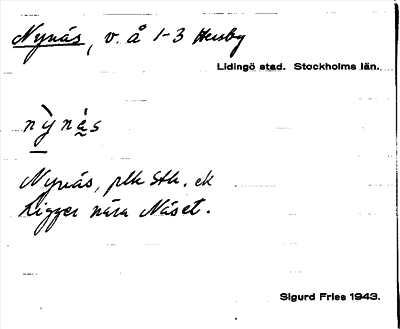 Nynäs, v. å 1-3 Husby
Lidingö stad. Stockholms län.
nỳnä́s
Nynäs, plk Stk. ek
Ligger nära Näset.
Sigurd Fries 1943.